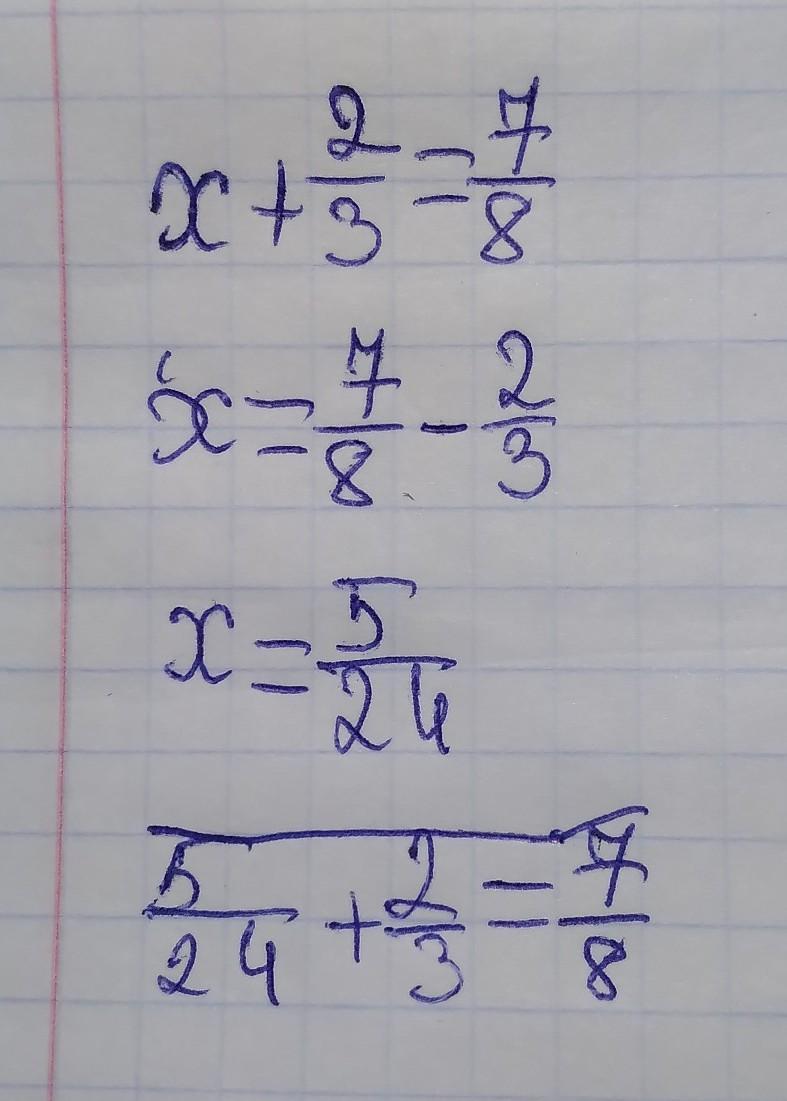 x + 2/3 = 7/8
x = 7/8 - 2/3
x = 5/24
5/24 + 2/3 = 7/8